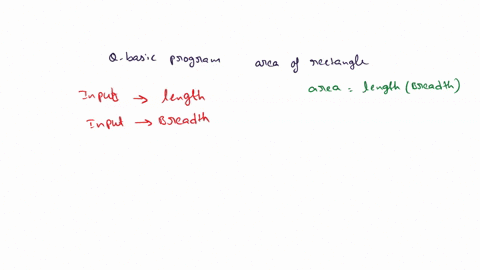 Q-basic program area of rectangle
Inputs → length
Input → Breadth
area = length (Breadth)